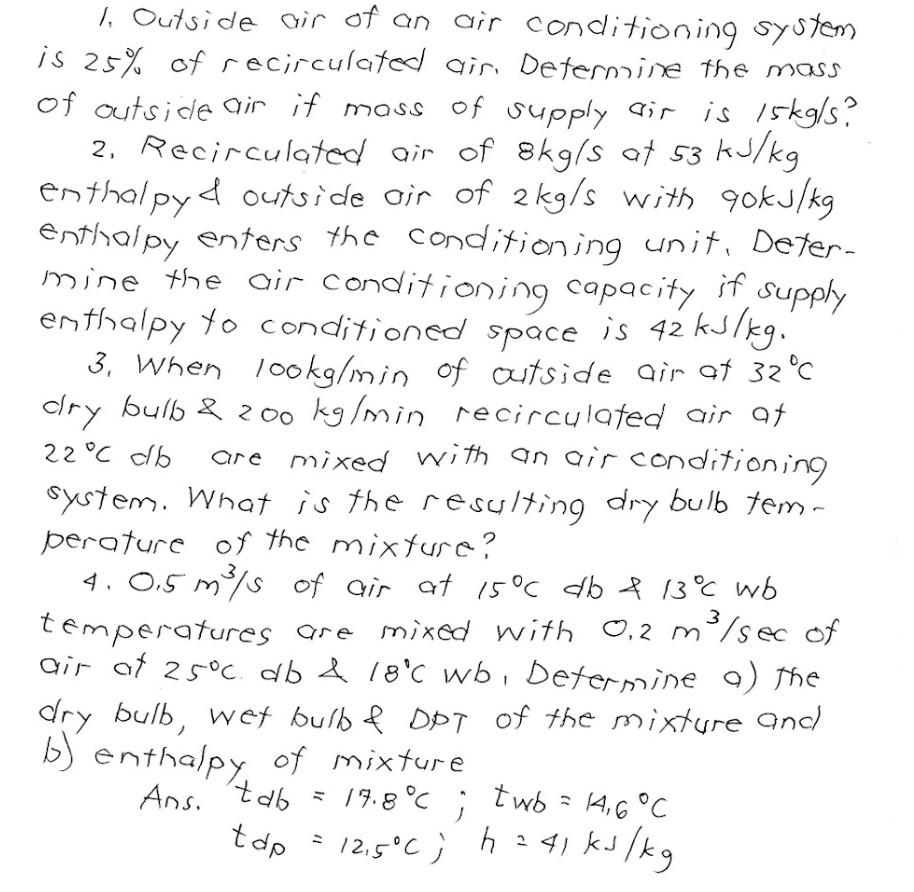 1. Outside air of an air conditioning system
is 25% of recirculated air. Determine the mass
of outside air if mass of supply air is 15kg/s?
2. Recirculated air of 8kg/s at 53 kJ/kg
enthalpy & outside air of 2kg/s with 90kJ/kg
enthalpy enters the conditioning unit. Deter-
mine the air conditioning capacity if supply
enthalpy to conditioned space is 42 kJ/kg.
3. When 100kg/min of outside air at 32°C
dry bulb & 200 kg/min recirculated air at
22°C db are mixed with an air conditioning
system. What is the resulting dry bulb tem-
perature of the mixture?
4. 0.5 m³/s of air at 15°C db & 13°C wb
temperatures are mixed with 0.2 m³/sec of
air at 25°C db & 18°C wb. Determine a) the
dry bulb, wet bulb & DPT of the mixture and
b) enthalpy of mixture
Ans. tdb = 17.8°C ; twb = 14.6°C
tdp = 12.5°C ; h = 41 kJ/kg